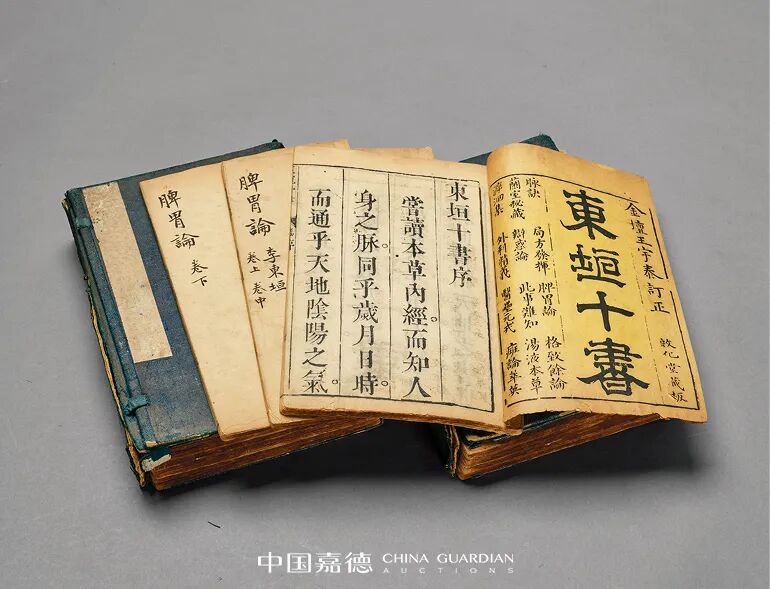 金壇王宇泰訂正
敦化堂藏板
東垣十書
脉訣 局方發揮 脾胃論 格致餘論
蘭室秘藏 辯惑論 此事難知 湯液本草
溯洄集 外科精義 醫壘元戎 萃英
東垣十書序
嘗讀本草內經而知人
身之脉。同乎歲月日時。
而通乎天地陰陽之氣
脾胃論 李東垣
卷上 卷中
脾胃論 卷下
中国嘉德 CHINA GUARDIAN
AUCTIONS